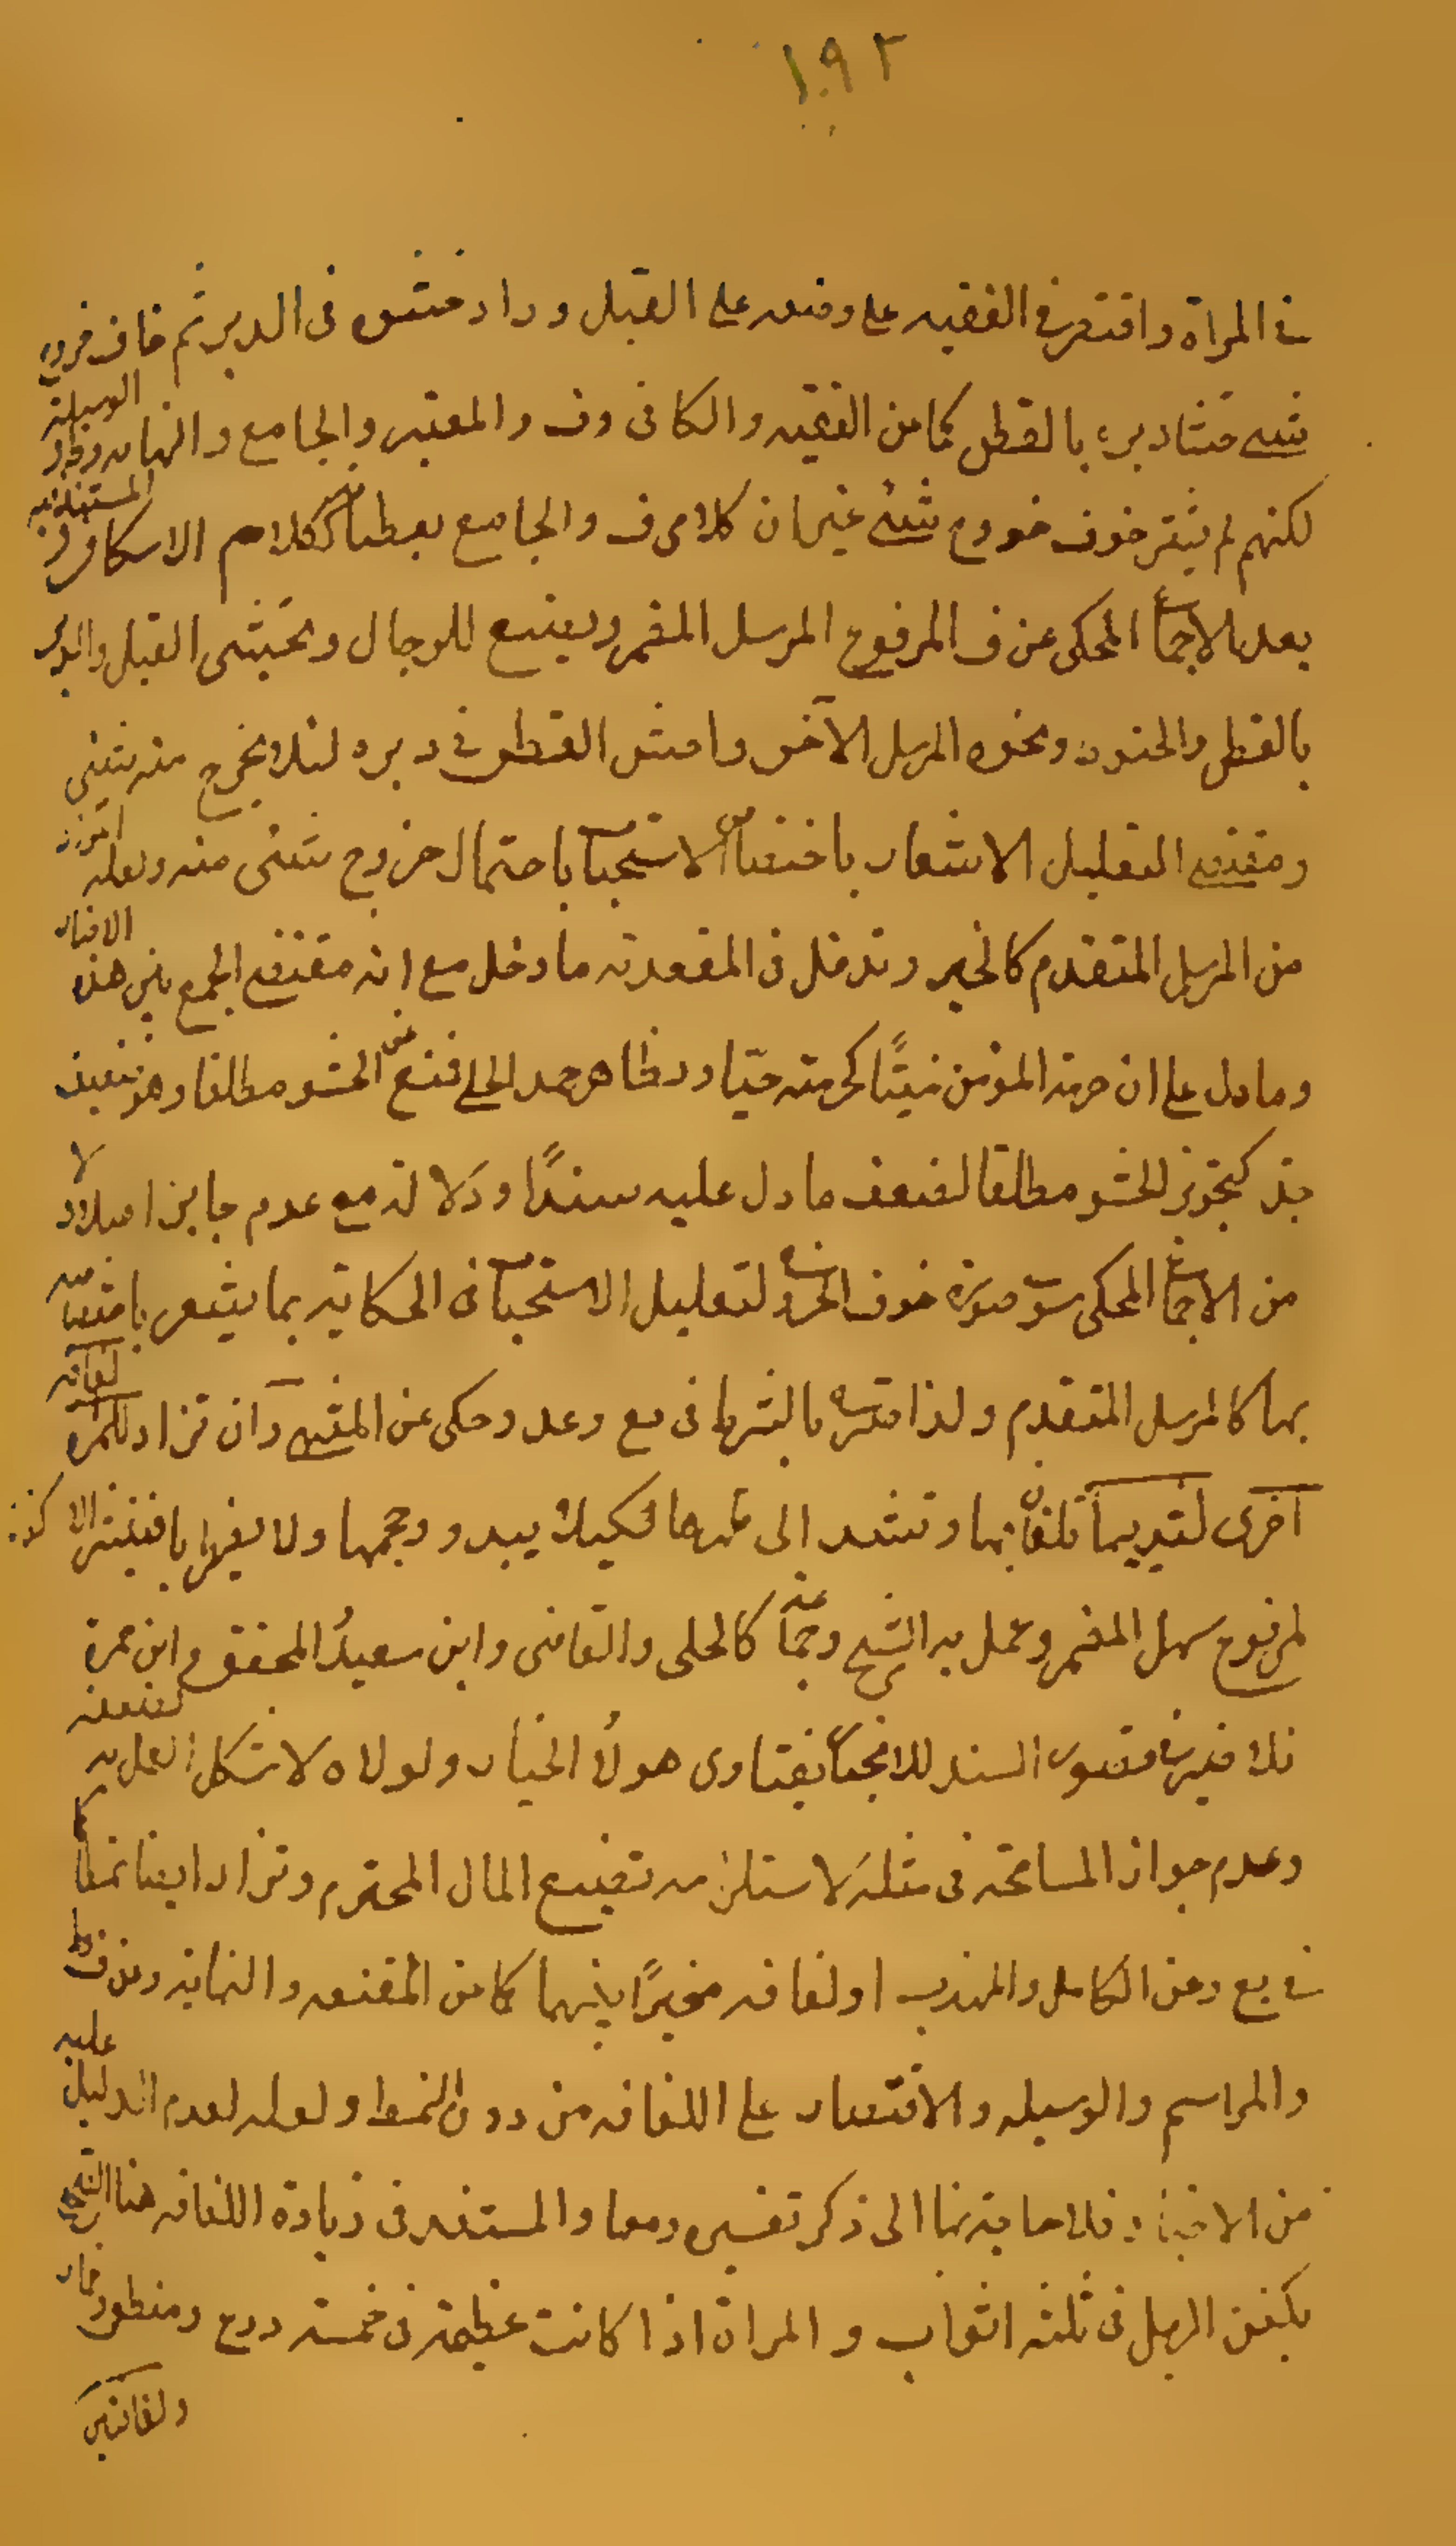 ١٩٢
في المراة واقتصر في الفقيه على وضعه على القبل وزاد حشو في الدبر ثم خاف خروج
شئ حشا دبره بالقطن كما من الفقيه والكافي وف والمعتبر والجامع والنهايه والوسيلة
لكنهم لم يشترط خوف خروج شئ غير ان كلامى ف والجامع يعطيا كلام الاسكافي والمستند فيه
بعد الاجماع المحكى عن ف المرفوع المرسل المضمر ويصنع للرجال ويحتشى القبل والدبر
بالقطن والحنوط ونحوه المرسل الآخر واحش القطن في دبره لئلا يخرج منه شئ
ومقتضى التعليل الاشعار باختصاص الاستحباب باحتمال خروج شئ منه ولعله
من المرسل المتقدم كالخبر وتدخل في المقعدته ما دخل مع انه مقتضى الجمع بين هذه الاخبار
وما دل على ان حرمة المؤمن ميتًا كحرمته حيّا وظاهر الحلي فمنع عن الحشو مطلقا وهو ضعيف
جدا كتجويز الحشو مطلقا لضعف ما دل عليه سندًا ودلالة مع عدم جابر اصلا لا
من الاجماع المحكى سوى صورة خوف الخروج لتعليل الاستحباب في الحكاية بما يشعر باختصاصه
بها كالمرسل المتقدم ولذا بالشرط في مع وعد وحكى عن وان تزاد للمرأة لفافة
اخرى لثدييها تلفان بها وتشد الى ظهرها لكيلا يبدو حجمها
لمرفوع سهل المضمر وعمل به الشيخ وجماعة كالحلى والقاضى وابن سعيد المحقق وابن حمزة
فلا ضير في قصور السند للانجبار بفتاوى هولاء الاخيار ولولاه لاشكل العمل به لضعفه
وعدم جواز المسامحة في مثله لاستلزامه تضييع المال المحترم وتزاد ايضا نمطا كما
في يع وعن الكامل والمهذب او لفافه مخيرًا بينهما كما من المقنعه والنهاية وعن ف ط
والمراسم والوسيله والاقتصار على اللفافه من دون النمط ولعله لعدم الدليل عليه
من الاخبار فلا حاجة بنا الى ذكر تفسيره ومعناه والمستند في زيادة اللفافه هنا الصحيح
يكفن الرجل في ثلثه اثواب والمراة اذا كانت عظيمة في خمسه درع ومنطق وخمار
ولفافتين